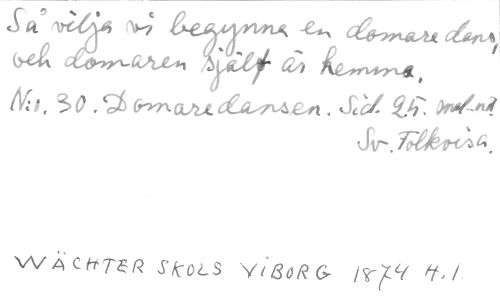 Så vilja vi begynna en domaredans,
och domaren själf är hemma.
N:o. 30. Domaredansen. Sid. 25. mel. nä
Sv. Folkvisa.
WÄCHTER SKOLS VIBORG 1874 H. 1